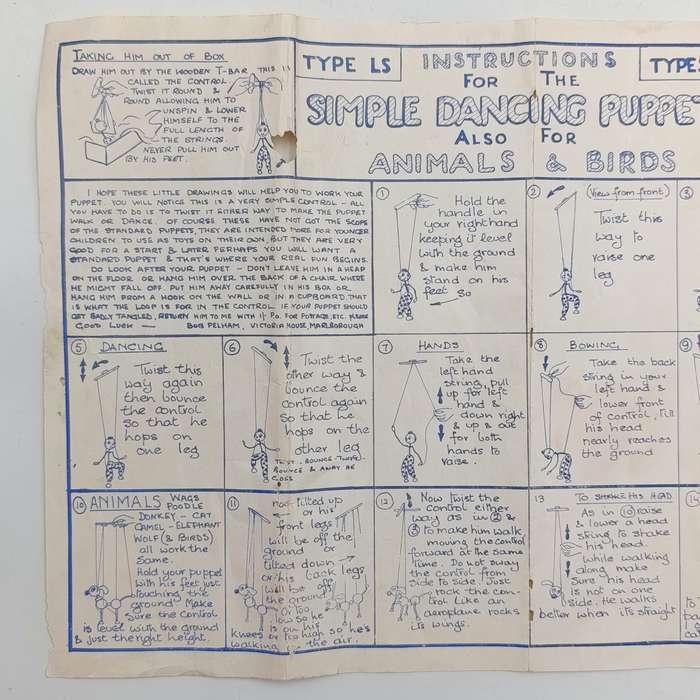 TAKING HIM OUT OF BOX
DRAW HIM OUT BY THE WOODEN T-BAR THIS IS
CALLED THE CONTROL
TWIST IT ROUND &
ROUND ALLOWING HIM TO
UNSPIN & LOWER
HIMSELF TO THE
FULL LENGTH OF
THE STRINGS.
NEVER PULL HIM OUT
BY HIS FEET.
TYPE LS
INSTRUCTIONS
FOR THE
SIMPLE DANCING PUPPET
ALSO FOR
ANIMALS & BIRDS
TYPE
I HOPE THESE LITTLE DRAWINGS WILL HELP YOU TO WORK YOUR
PUPPET. YOU WILL NOTICE THIS IS A VERY SIMPLE CONTROL - ALL
YOU HAVE TO DO IS TO TWIST IT EITHER WAY TO MAKE THE PUPPET
WALK OR DANCE. OF COURSE THESE HAVE NOT GOT THE SCOPE
OF THE STANDARD PUPPETS, THEY ARE INTENDED MORE FOR YOUNGER
CHILDREN TO USE AS TOYS ON THEIR OWN, BUT THEY ARE VERY
GOOD FOR A START & LATER PERHAPS YOU WILL WANT A
STANDARD PUPPET & THAT'S WHERE YOUR REAL FUN BEGINS.
DO LOOK AFTER YOUR PUPPET - DON'T LEAVE HIM IN A HEAP
ON THE FLOOR OR HANG HIM OVER THE BACK OF A CHAIR WHERE
HE MIGHT FALL OFF. PUT HIM AWAY CAREFULLY IN HIS BOX OR
HANG HIM FROM A HOOK ON THE WALL OR IN A CUPBOARD, THAT
IS WHAT THE LOOP IS FOR IN THE CONTROL. IF YOUR PUPPET SHOULD
GET BADLY TANGLED, RETURN HIM TO ME WITH FOR POSTAGE, ETC. PLEASE
GOOD LUCK — BOB PELHAM, VICTORIA HOUSE MARLBOROUGH
1
Hold the
handle in
your right hand
keeping it level
with the ground
& make him
stand on his
feet
so
2 (View from front)
Twist this
way to
raise one
leg
3
5 DANCING
Twist this
way again
then bounce
the control
so that he
hops on
one leg
6
Twist the
other way &
bounce the
control again
so that he
hops on the
other leg
TWIST. BOUNCE - TWIST.
BOUNCE & AWAY HE
GOES
7 HANDS
Take the
left hand
string, pull
up for left
hand &
down right
& up & out
for both
hands to
raise.
8 BOWING
Take the back
string in your
left hand &
lower front
of control, till
his head
nearly reaches
the ground
9
10 ANIMALS WAGS
POODLE
DONKEY - CAT
CAMEL - ELEPHANT
WOLF (& BIRDS)
all work the
same.
Hold your puppet
with his feet just
touching the
ground. Make
sure the control
is level with the ground
& just the right height.
11
not tilted up
or his
front legs
will be off the
ground or
tilted down
or his back legs
will be off
the ground
or too
low so he
is on his
knees or too high so he's
walking in the air.
12
Now twist the
control either
way as in 2 &
3 to make him walk,
moving the control
forward at the same
time. Do not sway
the control from
side to side. Just
rock the con-
trol like an
aeroplane rocks
its wings.
13 TO SHAKE HIS HEAD
As in 10 raise
& lower a head
string to shake
his head
while walking
along make
sure his head
is not on one
side. He walks
better when its straight
14